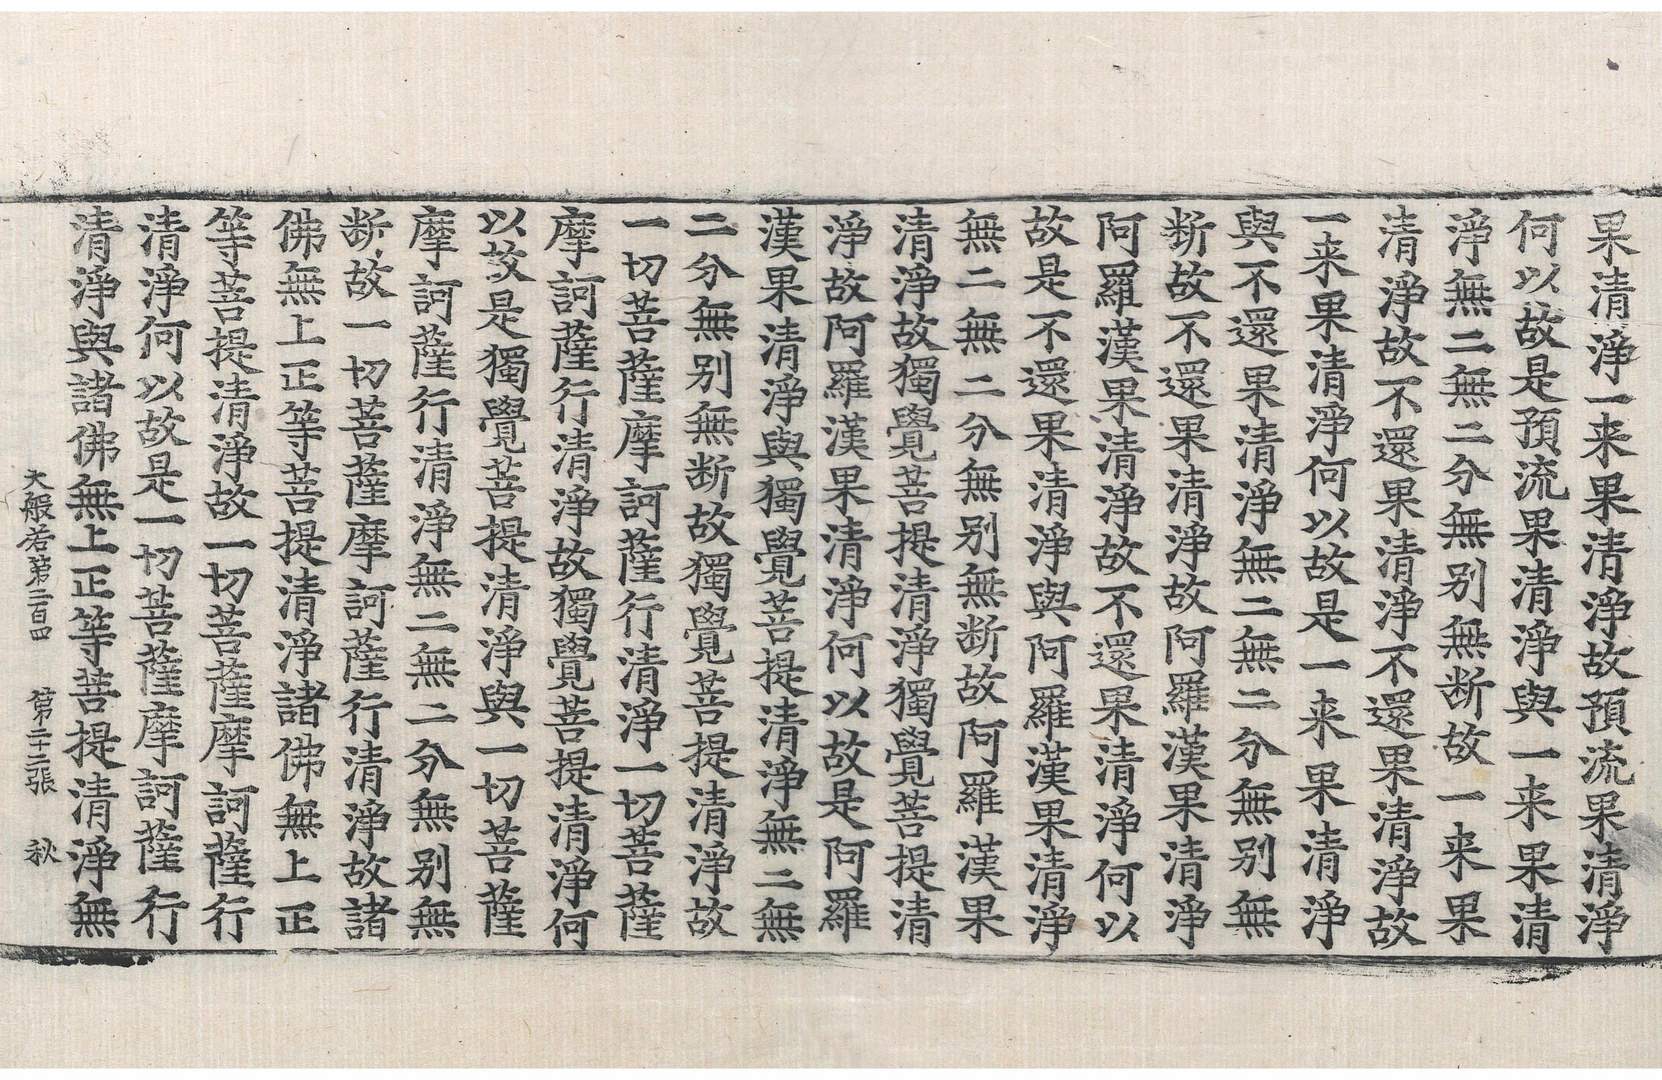 果清淨一来果清淨故預流果清淨
何以故是預流果清淨與一来果清
淨無二無二分無別無断故一来果
清淨故不還果清淨不還果清淨故
一来果清淨何以故是一来果清淨
與不還果清淨無二無二分無別無
断故不還果清淨故阿羅漢果清淨
阿羅漢果清淨故不還果清淨何以
故是不還果清淨與阿羅漢果清淨
無二無二分無別無断故阿羅漢果
清淨故獨覺菩提清淨獨覺菩提清
淨故阿羅漢果清淨何以故是阿羅
漢果清淨與獨覺菩提清淨無二無
二分無別無断故獨覺菩提清淨故
一切菩薩摩訶薩行清淨一切菩薩
摩訶薩行清淨故獨覺菩提清淨何
以故是獨覺菩提清淨與一切菩薩
摩訶薩行清淨無二無二分無別無
断故一切菩薩摩訶薩行清淨故諸
佛無上正等菩提清淨諸佛無上正
等菩提清淨故一切菩薩摩訶薩行
清淨何以故是一切菩薩摩訶薩行
清淨與諸佛無上正等菩提清淨無
大般若第二百四 第二十二張 秋